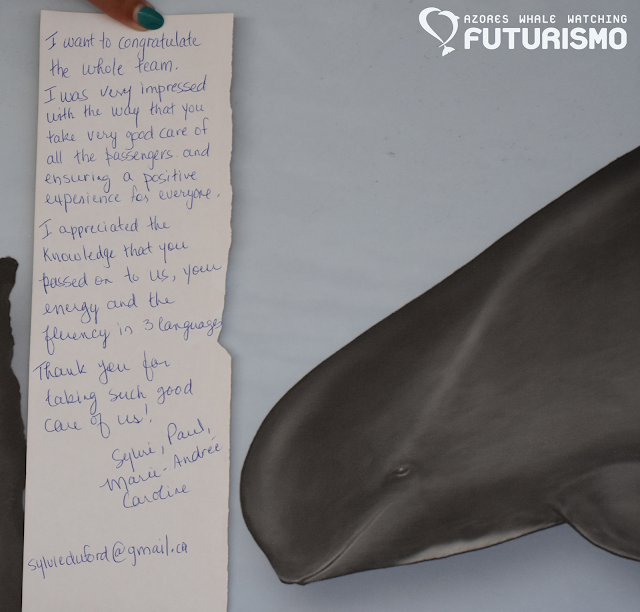 AZORES WHALE WATCHING
FUTURISMO
I want to congratulate
the whole team.
I was very impressed
with the way that you
take very good care of
all the passengers and
ensuring a positive
experience for everyone.
I appreciated the
knowledge that you
passed on to us, your
energy and the
fluency in 3 languages
Thank you for
taking such good
care of us!
Sylvie, Paul,
Marie-Andrée
Caroline
sylvieduford@gmail.ca